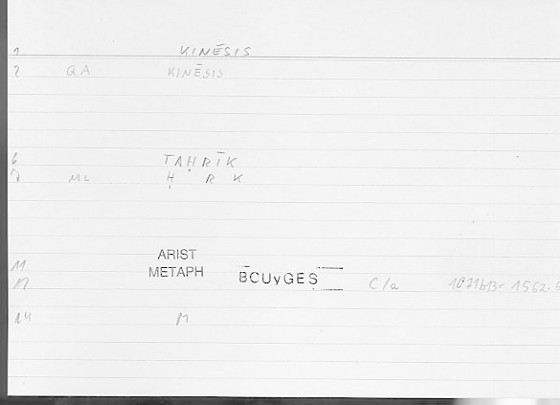 1 KINĒSIS
2 QA KINĒSIS
6 TAḤRĪK
7 ML Ḥ R K
11 ARIST
METAPH BCUyGES C/a 1071b13- 1562.5
14 M